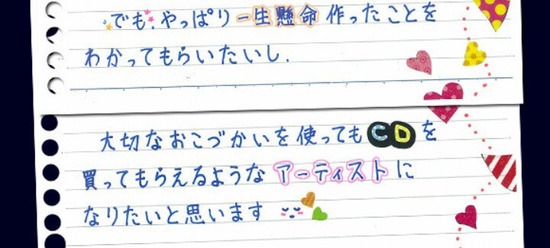 でも、やっぱり一生懸命作ったことを
わかってもらいたいし、
大切なおこづかいを使ってもCDを
買ってもらえるようなアーティストに
なりたいと思います